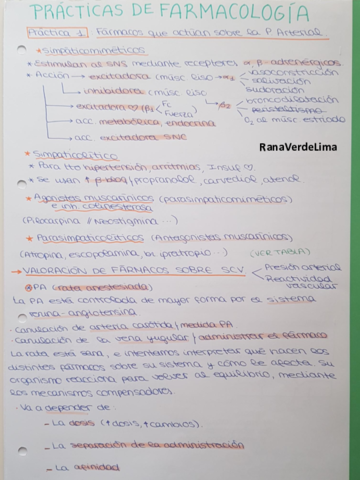 PRÁCTICAS DE FARMACOLOGÍA
Práctica 1. Fármacos que actúan sobre la P Arterial
* Simpaticomiméticos
• Estimulan al SNS mediante receptores α, β adrenérgicos
• Acción → excitadora (músc liso → α1 vasoconstricción
salivación
sudoración
→ inhibidora (músc liso → β2 broncodilatación
→ excitadora ♡ (β1 Fc
Fuerza)
→ acc metabólica, endocrina
→ acc. excitadora SNC
RanaVerdeLima
* Simpaticolítico
• Para tto hipertensión, arritmias, Insuf ♡.
• Se usan
* Agonistas muscarínicos (parasimpaticomiméticos)
e inh. colinesterasa
(Pilocarpina // Neostigmina ...)
* Parasimpaticolíticos (Antagonistas muscarínicos)
(Atropina, escopolamina, br. ipratropio ...) (VER TABLA)
→ VALORACIÓN DE FÁRMACOS SOBRE SCV Presión arterial
Reactividad
vascular
PA (rata anestesiada)
La PA está controlada de mayor forma por el sistema
renina-angiotensina.
· Canulación de arteria carótida / medida PA
Canulación de la vena yugular / administrar el fármaco
La rata está sana, e intentamos interpretar qué hacen los
distintos fármacos sobre su sistema, y cómo le afecta. Su
organismo reacciona para volver al equilibrio, mediante
los mecanismos compensadores.
· Va a depender de:
- La dosis (↑dosis, ↑cambios).
- La separación de la administración
- La afinidad